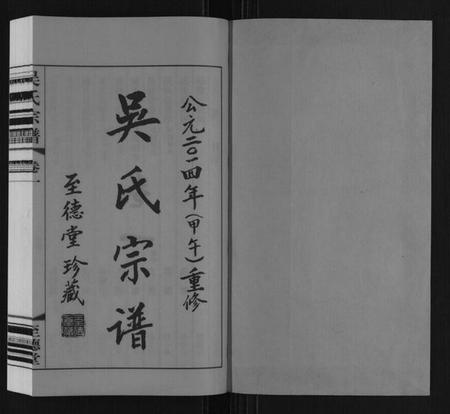 公元二〇一四年（甲午）重修
吳氏宗谱
至德堂珍藏
吴氏宗譜 卷一
至德堂